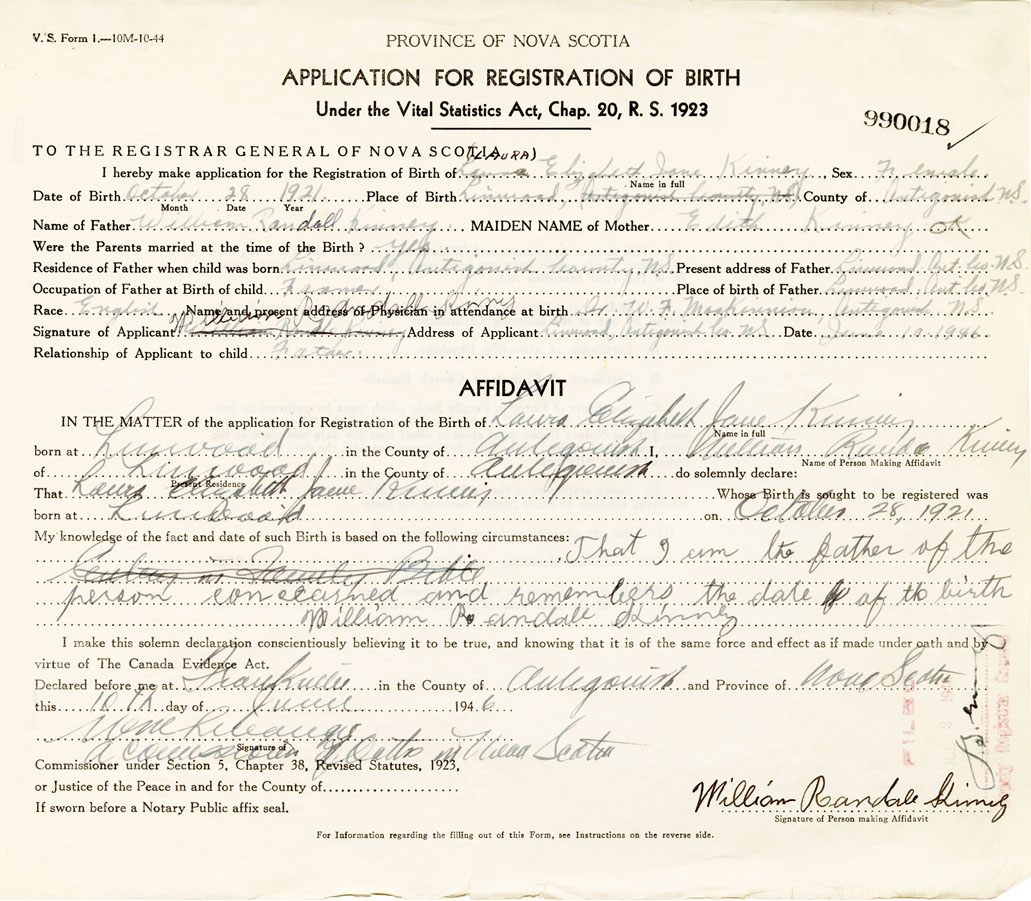 V. S. Form 1.—10M-10-44
PROVINCE OF NOVA SCOTIA
APPLICATION FOR REGISTRATION OF BIRTH
Under the Vital Statistics Act, Chap. 20, R. S. 1923
990018
TO THE REGISTRAR GENERAL OF NOVA SCOTIA (LAURA)
I hereby make application for the Registration of Birth of Elizabeth Jane Kinney Sex Female
Name in full
Date of Birth October 28 1921 Place of Birth Linwood, Antigonish County NS, County of Antigonish NS.
Month Date Year
Name of Father William Randall Kinney MAIDEN NAME of Mother Edith Kinney OK
Were the Parents married at the time of the Birth ? yes
Residence of Father when child was born Linwood Antigonish County NS. Present address of Father Linwood Ant. Co N.S.
Occupation of Father at Birth of child Place of birth of Father Linwood Ant. Co NS.
Race English Name and present address of Physician in attendance at birth Dr W. F. MacKinnon Antigonish N.S.
Signature of Applicant William Randall Kinney Address of Applicant Linwood, Antigonish Co. NS. Date June 10 1946
Relationship of Applicant to child Father
AFFIDAVIT
IN THE MATTER of the application for Registration of the Birth of Laura Elizabeth Jane Kinney
Name in full
born at Linwood in the County of Antigonish I, William Randale Kinney
Name of Person Making Affidavit
of Linwood in the County of Antigonish do solemnly declare:
Present Residence
That Laura Elizabeth Jane Kinney Whose Birth is sought to be registered was
born at Linwood on October 28, 1921
My knowledge of the fact and date of such Birth is based on the following circumstances: That I am the father of the
Century in Family Bible
person concearned and remembers the date of the birth
William Randale Kinney
I make this solemn declaration conscientiously believing it to be true, and knowing that it is of the same force and effect as if made under oath and by
virtue of The Canada Evidence Act.
Declared before me at in the County of Antigonish and Province of Nova Scotia
this 10th day of June 1946
A Commissioner of Oaths in Nova Scotia
Signature of
Commissioner under Section 5, Chapter 38, Revised Statutes, 1923,
or Justice of the Peace in and for the County of
If sworn before a Notary Public affix seal.
FILED
William Randale Kinney
Signature of Person making Affidavit
For Information regarding the filling out of this Form, see Instructions on the reverse side.